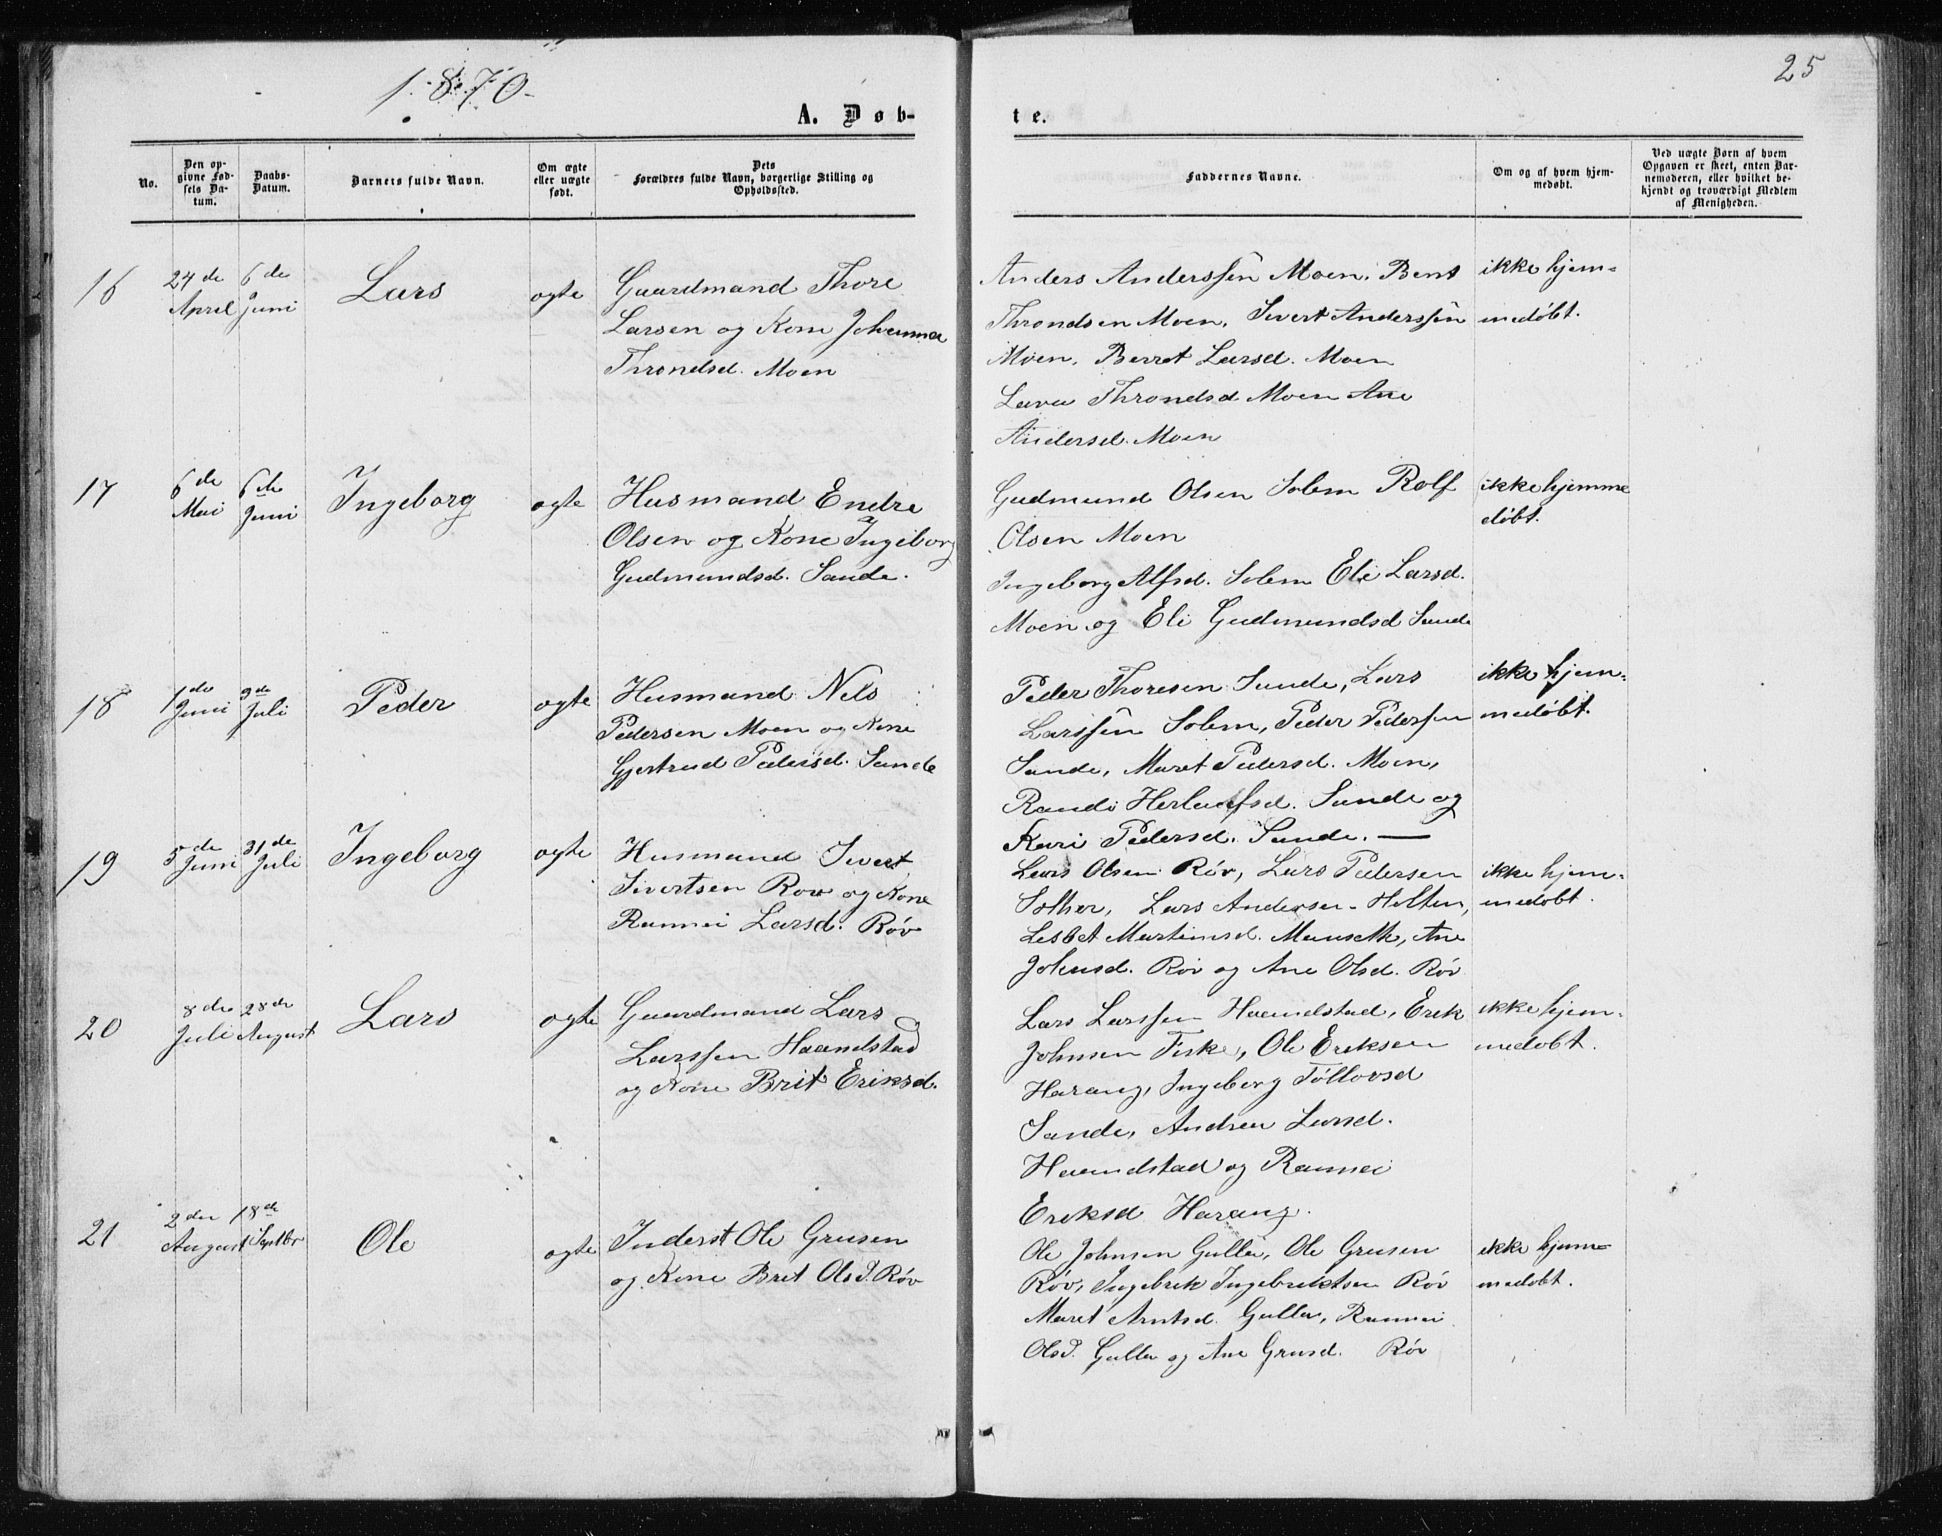 1870
25
A. Døb-
te.
No.
Den op-
givne Fød-
sels Da-
tum.
Daabs-
Datum.
Barnets fulde Navn.
Om ægte
eller uægte
født.
Dets
Forældres fulde Navn, borgerlige Stilling og
Opholdssted.
Faddernes Navne.
Om og af hvem hjem-
medøbt.
Ved uægte Børn af hvem
Opgaven er skeet, enten Bar-
nemoderen, eller hvilket be-
kjendt og troværdigt Medlem
af Menigheden.
16
24 de
April
6 de
Juni
Lars
ogte
Gaardmand Thore
Larsen og Kone Johanna
Throndsd. Moen
Anders Anderssen Moen, Bent
Throndsen Moen, Sivert Anderssen
Moen, Berret Larsd. Moen
Lava Throndsd Moen Ane
Andersd. Moen
ikke hjem-
medøbt.
17
6 de
Mai
6 de
Juni
Ingeborg
ogte
Husmand Endre
Olsen og Kone Ingeborg
Gudmundsd. Sande.
Gudmund Olsen Solem Rolf
Olsen Moen
Ingeborg Alfsd. Solem Eli Larsd.
Moen og Eli Gudmundsd Sande
ikke hjemme
døbt.
18
1 de
Juni
9 de
Juli
Peder
ogte
Husmand Nels
Pedersen Moen og Kone
Gjertrud Pedersd. Sande
Peder Thoresen Sande, Lars
Larssen Solem, Peder Pederssen
Sande, Maret Pedersd. Moen,
Randi Herlaufsd. Sande og
Kari Pedersd. Sande. —
ikke hjem-
medøbt.
19
5 de
Juni
31 de
Juli
Ingeborg
ogte
Husmand Sivert
Sivertsen Røv og Kone
Rannei Larsd. Røv
Lars Olsen Røv, Lars Pedersen
Solher, Lars Andersen Holten,
Lesbet Martinsd. Mansetk, Ane
Johnsd. Røv og Ane Olsd. Røv
ikke hjem-
medøbt.
20
8 de
Juli
28 de
August
Lars
ogte
Gaardmand Lars
Larssen Haandstad
og Kone Brit Eriksd.
Lars Larssen Haandstad, Erik
Johnsen Fiske, Ole Eriksen
Harang, Ingeborg Tøllovsd
Sande, Andrea Larsd.
Haandstad og Rannei
Eriksd Harang.
ikke hjem-
medøbt.
21
2 den
August
18 de
Septbr
Ole
ogte
Inderst Ole Grusen
og Kone Brit Olsd. Røv
Ole Johnsen Gulla, Ole Grusen
Røv, Ingebrik Ingebriktsen Røv
Maret Arntsd. Gulla, Rannei
Olsd. Gulla og Ane Grusd. Røv
ikke hjem-
medøbt.